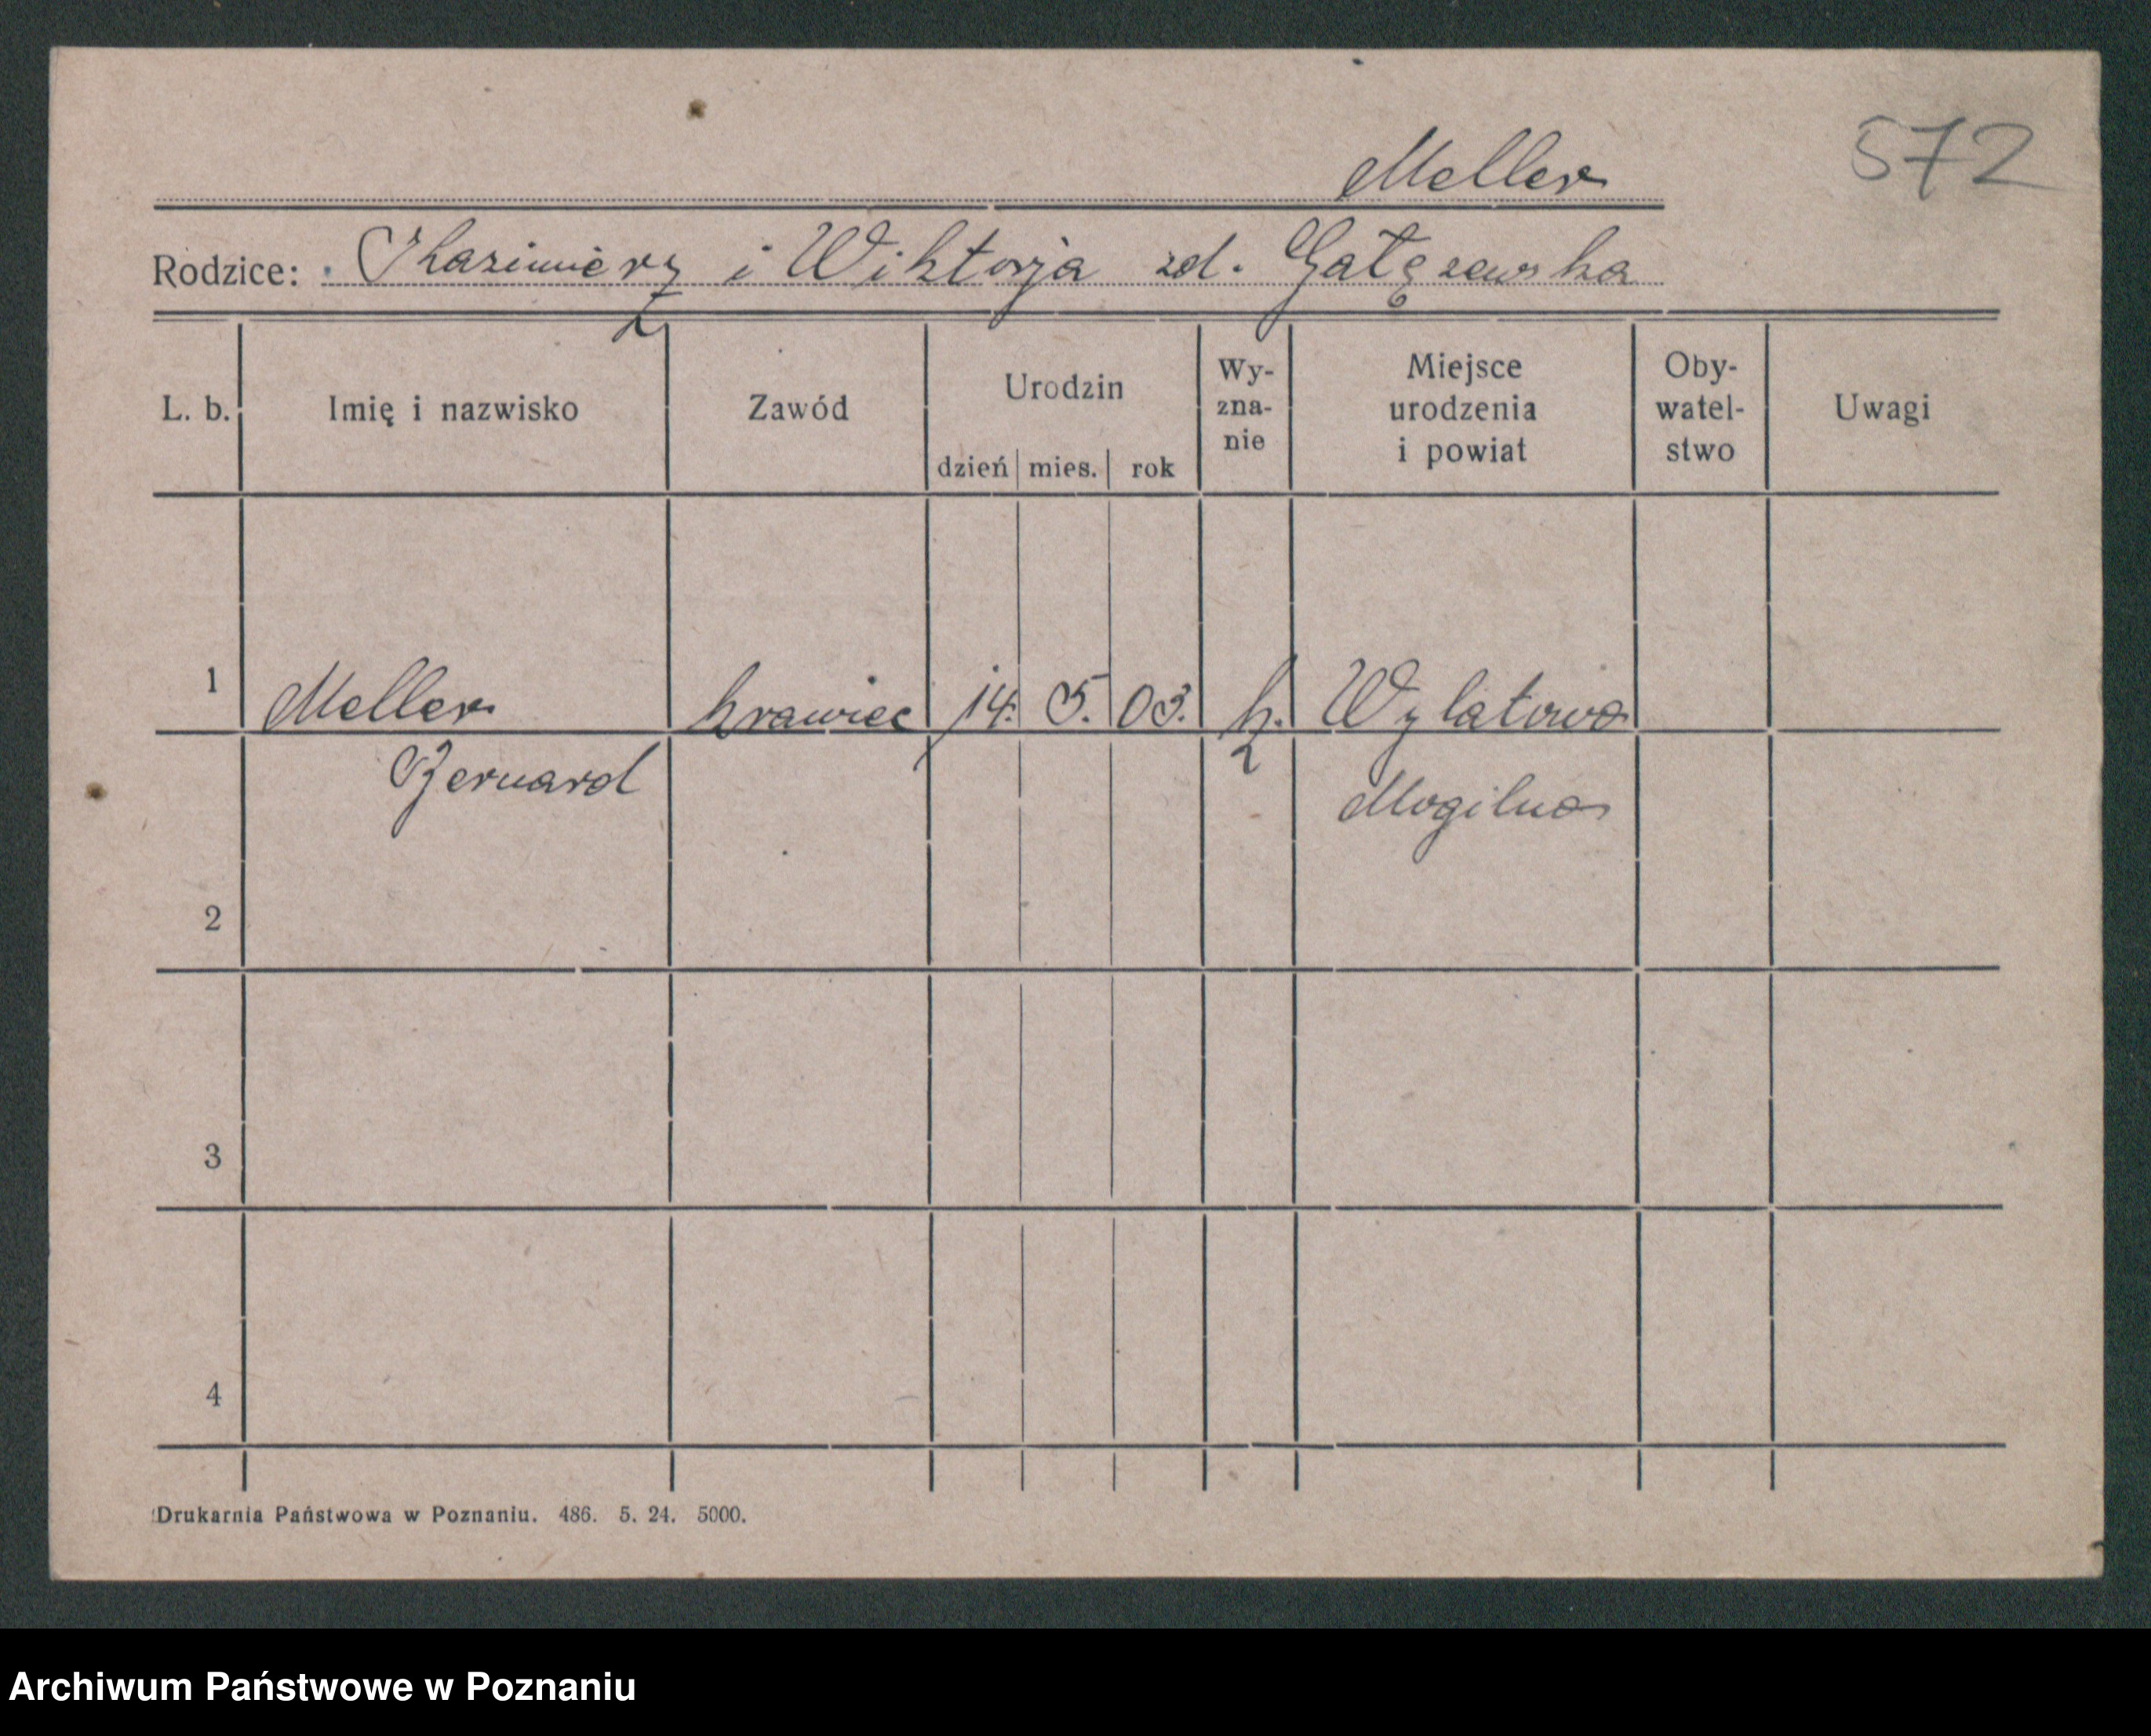 Meller
572
Rodzice: Kazimierz i Wiktorja zd. Gałęzewska
L. b. Imię i nazwisko Zawód Urodzin dzień mies. rok Wy-zna-nie Miejsce urodzenia i powiat Oby-watel-stwo Uwagi
1 Meller krawiec 14. 5. 03. k. Wylatowo
Bernard Mogilno
2
3
4
Drukarnia Państwowa w Poznaniu. 486. 5. 24. 5000.
Archiwum Państwowe w Poznaniu